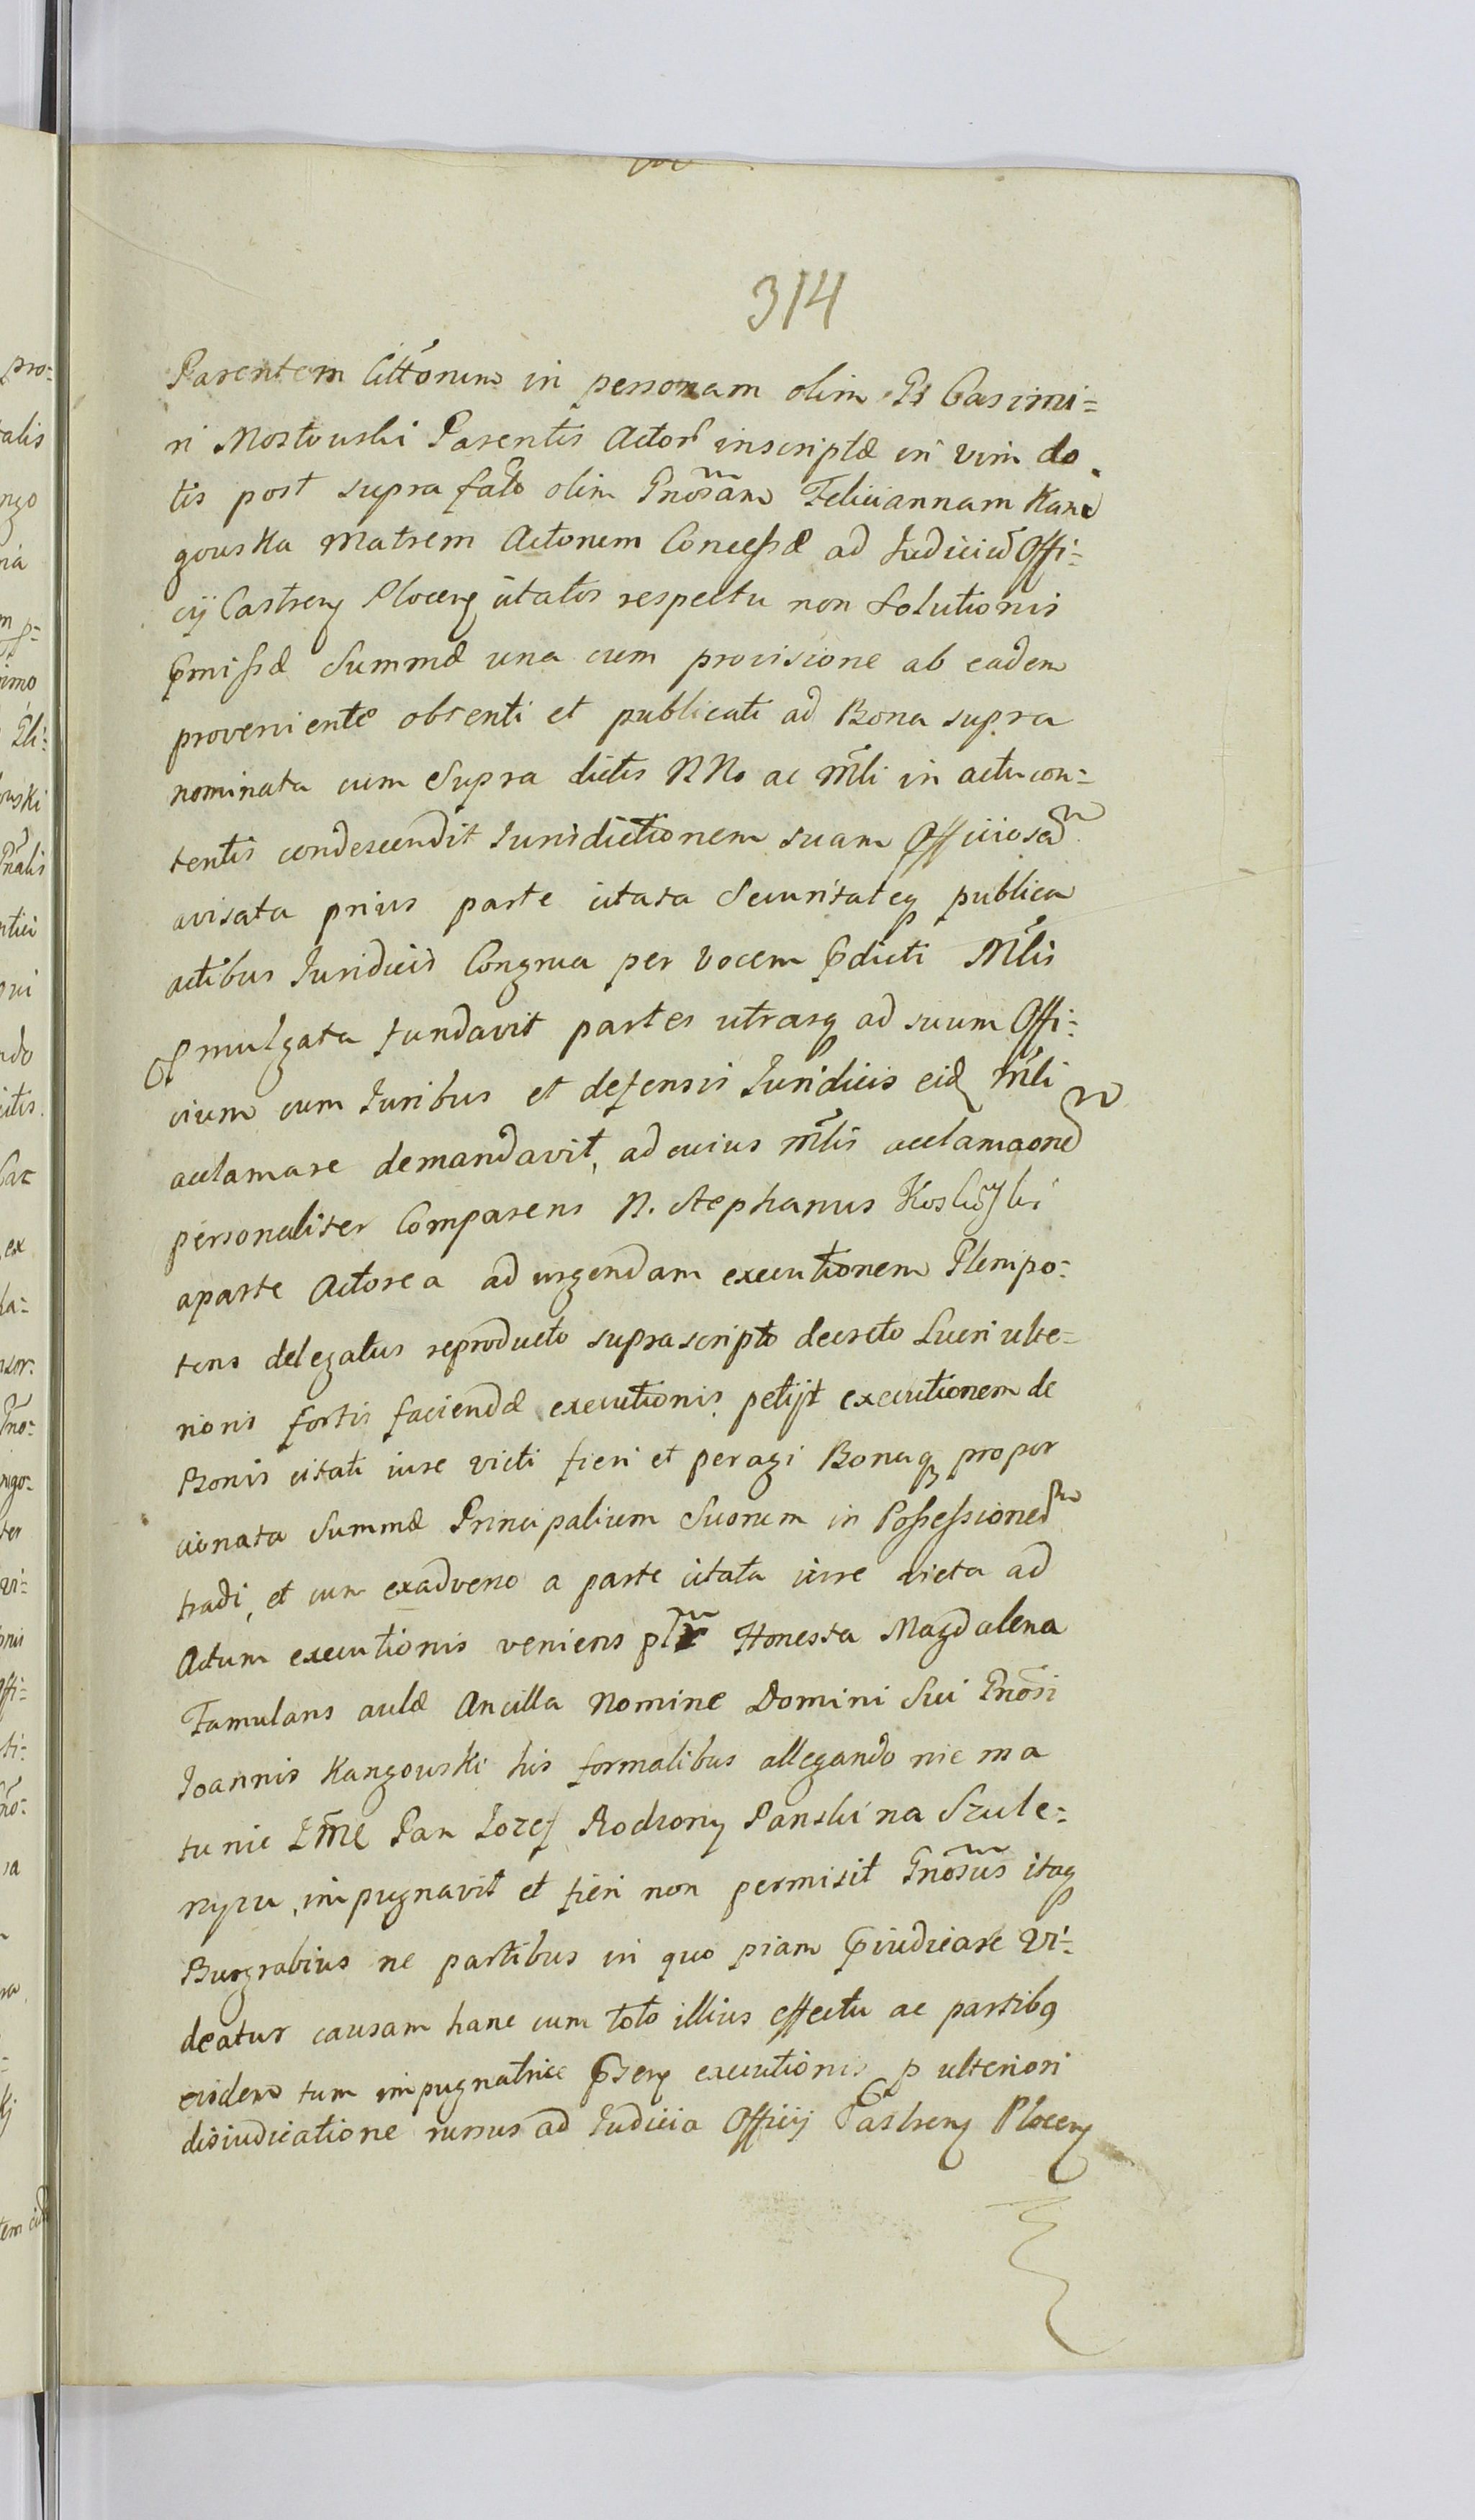 314
Parentem Cittorum in personam olim Gs Casimi=
ri Mostowski Parentis Actorũ inscriptæ in vim do
tis post supra fato olim Gnõsam Feliciannam Kan
gowska Matrem Actorum Concessæ ad Iudiciũ Offi=
cij Castren Plocen citatos respectu non Solutionis
Pmissæ Summæ una cum provisione ab eadem
proveniente obtenti et publicati ad Bona supra
nominata cum Supra dictis NNo ac Mli in actu con=
tentis condescendit Iurisdictionem suam Officiosam
avisata prius parte citata Securitateq publica
actibus Iuridicis Congrua per vocem Pdicti Mlis
Pmulgata fundavit partes utrasq ad suum Offi=
cium cum Iuribus et defensis Iuridicis eid Mli
acclamare demandavit, ad cuius Mlis acclamaonem
personaliter Comparens N. Stephanus
aparte Actorea ad urgendam executionem Plenipo=
tens delegatus reproducto suprascripto decreto Lucri ulte=
rioris fortis faciendæ executionis petijt executionem de
Bonis citati iure victi fieri et peragi Bonaq propor
cionata Summæ Principalium Suorum in Possessionem
tradi, et cum exadverso a parte citata iure victa ad
Actum executionis veniens plr Honesta Magdalena
Famulans aulæ Ancilla Nomine Domini Sui Gnõsi
Ioannis Kangowski his formalibus allegando nie ma
tu nic Imc Pan Iozef Rodzony Panski na Szule=
rzyzu, impugnavit et fieri non permisit Gnõsus itaq
Burgrabius ne partibus in quo piam Piudicare vi=
deatur causam hanc cum toto illius effectu ac partibq
eisdem tum impugnatrice Psen executionis p ulteriori
disiudicatione rursus ad Iudicia Officij Castren Plocen